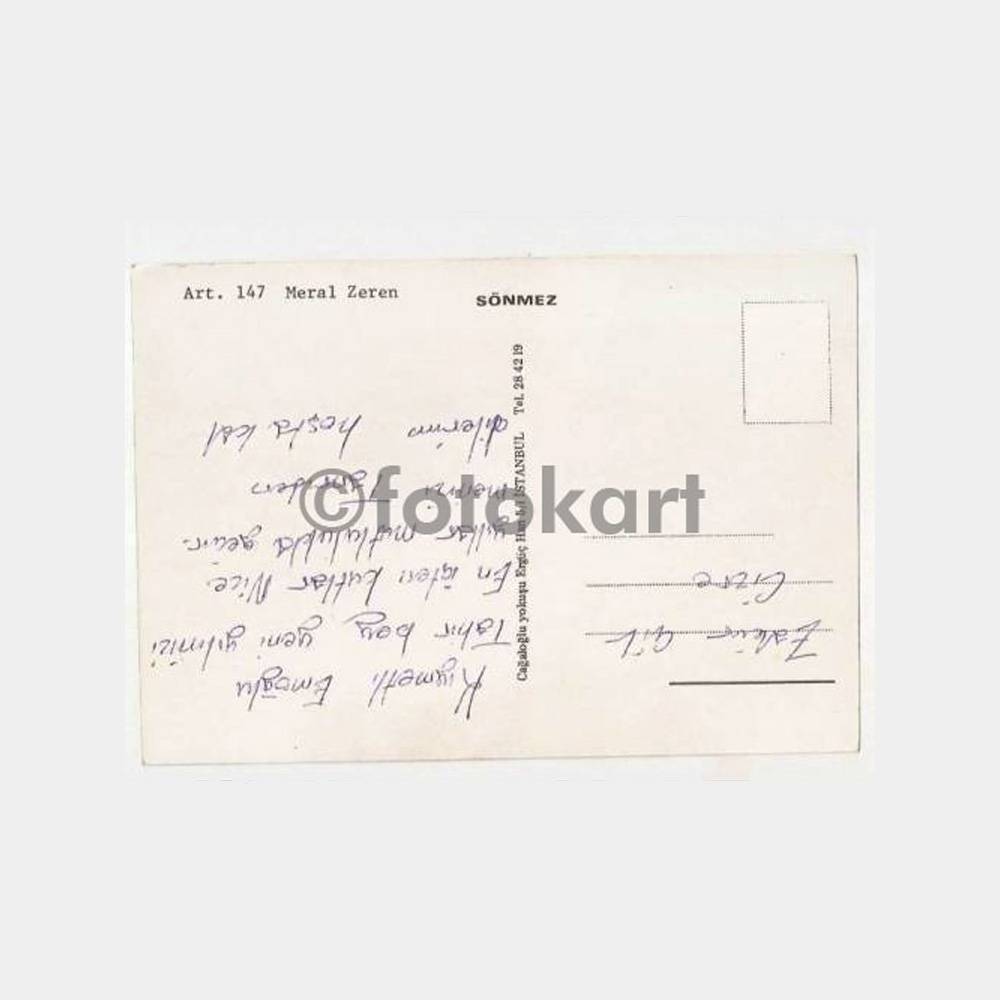 Art. 147 Meral Zeren
SÖNMEZ
Cağaloğlu yokuşu Ergüç Han b/1 İSTANBUL Tel. 28 42 19
©fotokart
Kıymetli Emoğlu
Tahir bey yeni yılınızı
En içten kutlar Nice
yıllar mutlulukla geçir.
menizi Tanrıdan
dilerim hoşta kal
Cizre